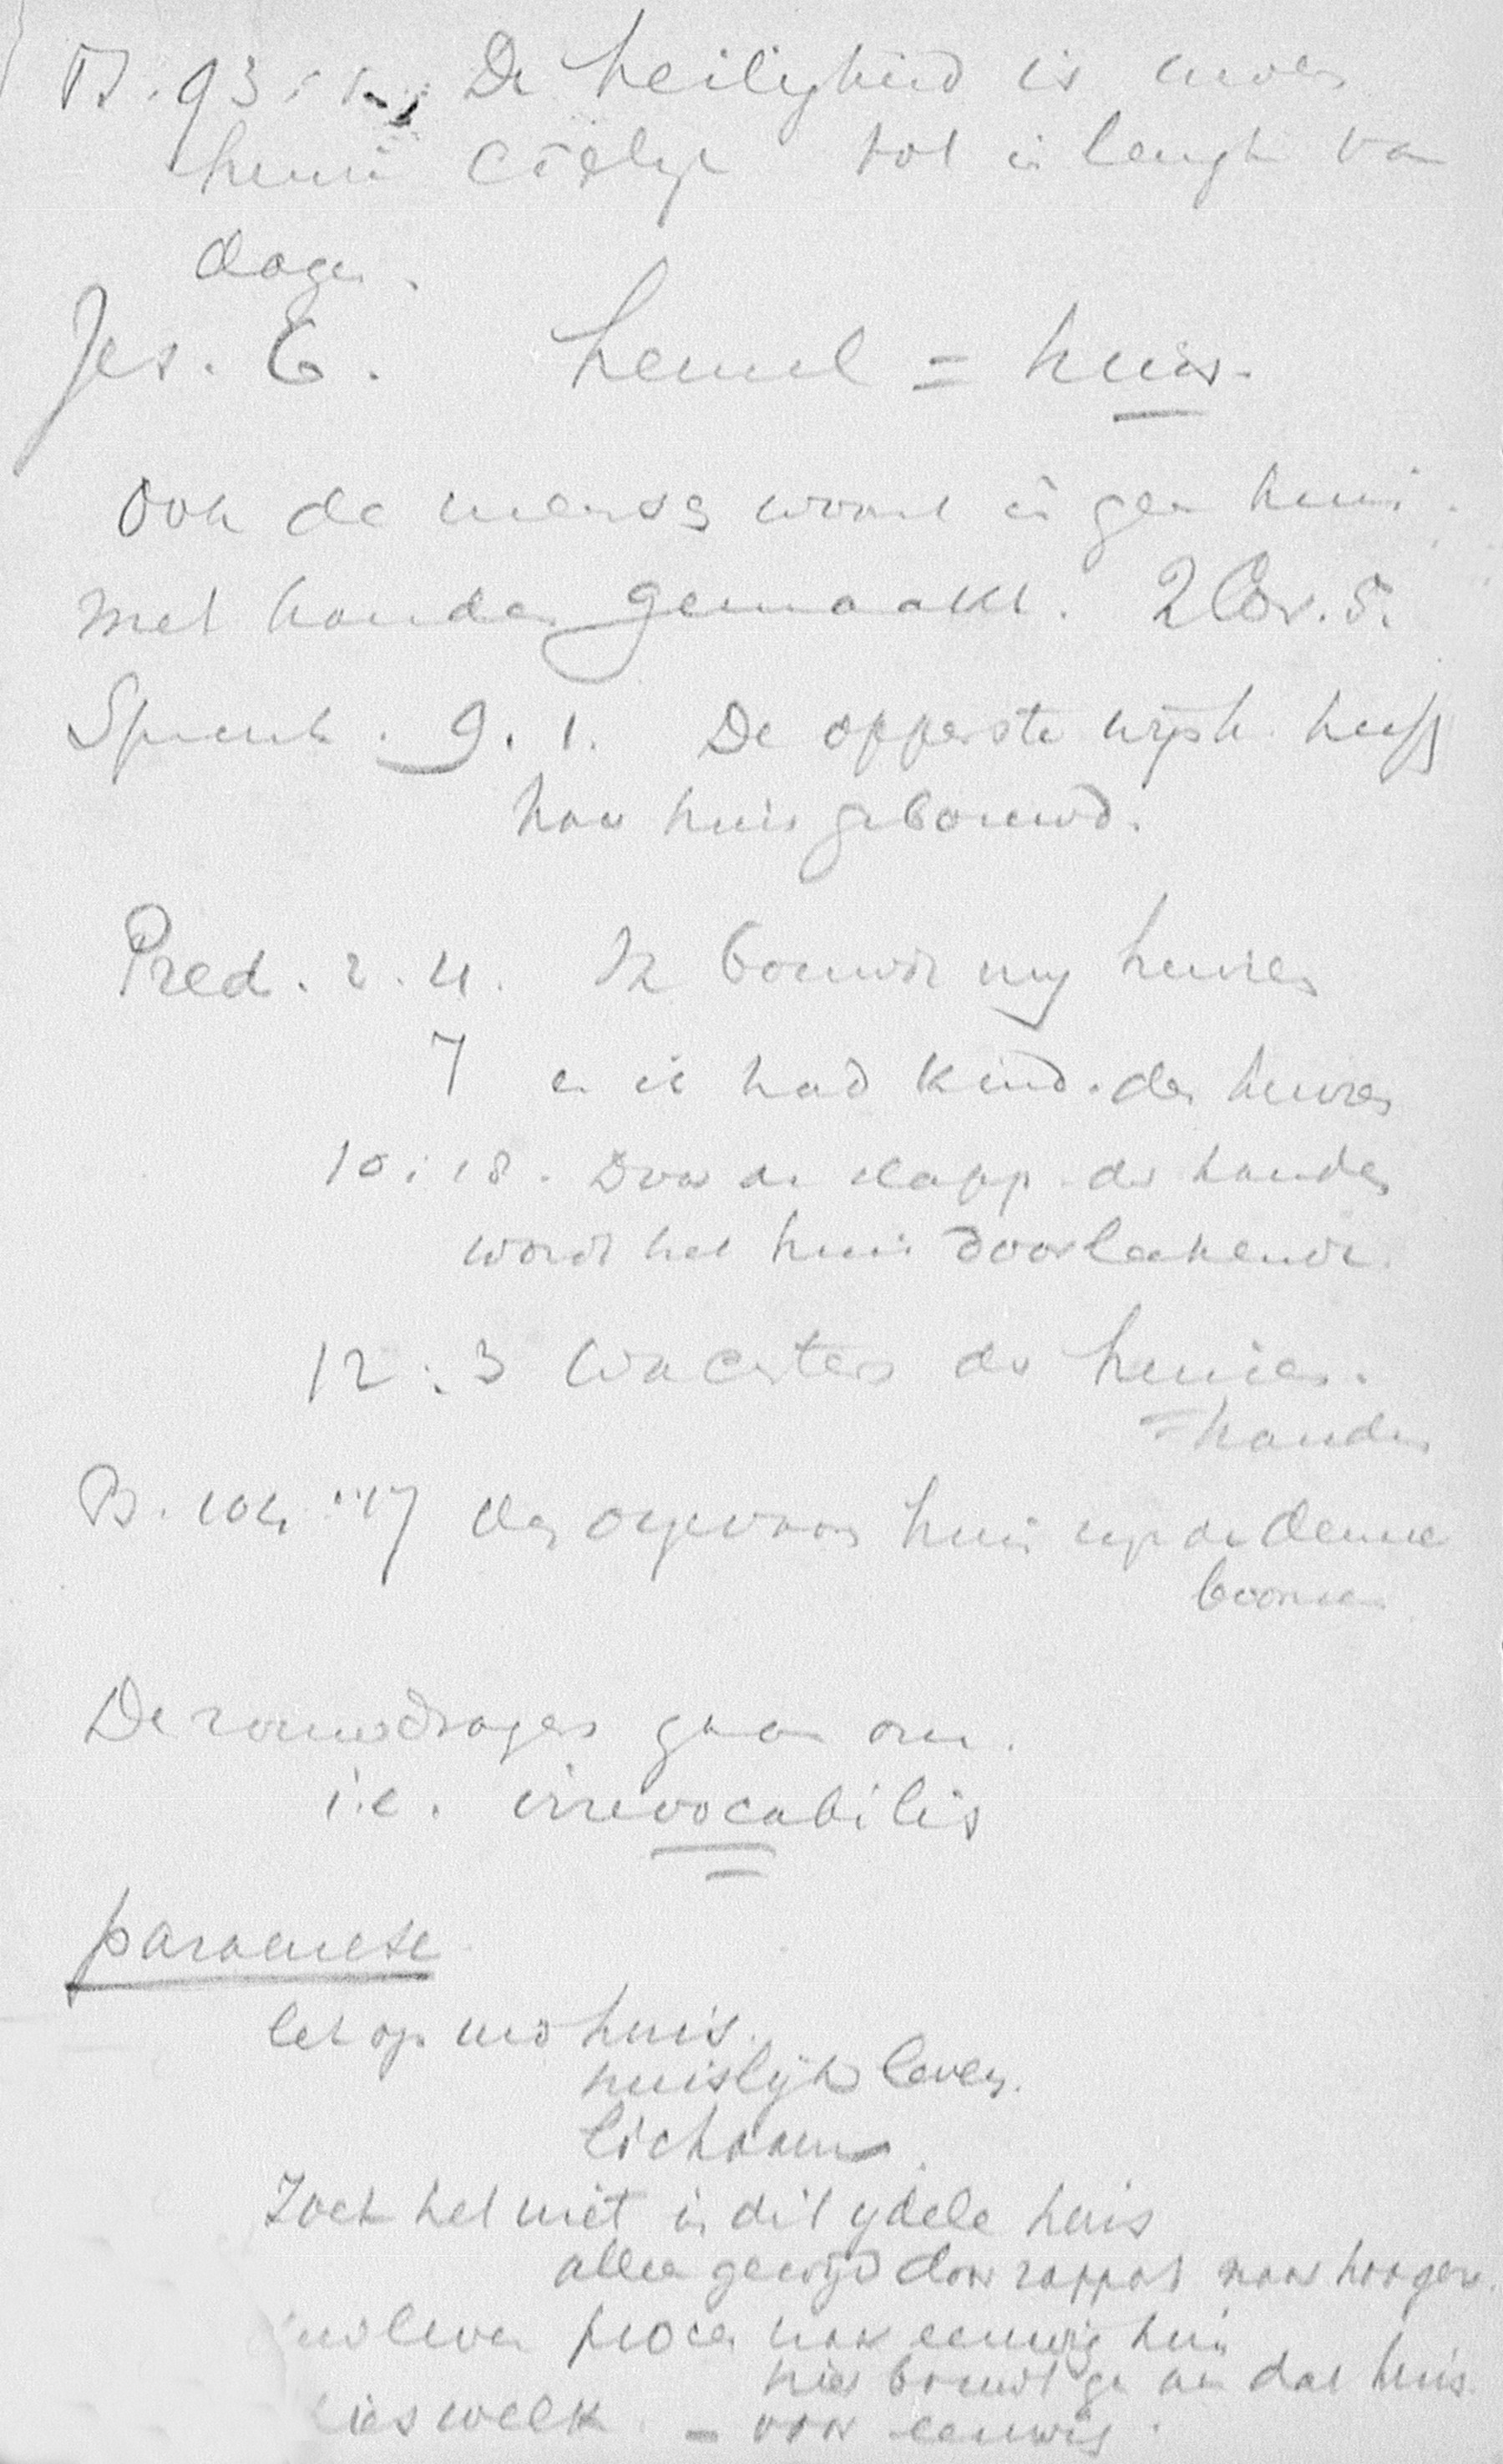 Ps. 93:5. De heiligheid is uwen
huize cierlijk tot in lengte van
dagen.
Jes. 6. hemel = huis.
Ook de mensch woont in geen huis
met handen gemaakt. 2 Cor. 5.
Spreuk. 9.1. De opperste wijsh. heeft
haar huis gebouwd.
Pred. 2.4. Ik bouwde mij huizen
7 en ik had kind. des huizes
10:18. Door de slapp. der handen
wordt het huis doorlekende.
12:3 Wachters des huizes.
= handen
Ps. 104:17 des ooyevaars huis zijn de denne
boomen
De rouwdragers gaan om.
i.e. irrevocabilis
paraenese
let op uw huis.
huislijk leven.
lichaam.
Zoek het niet in dit ydele huis
alleen gewijd door rapport naar hooger.
uw leven proces naar eeuwig huis
hier bouwt ge aan dat huis.
kies welk. – voor eeuwig.